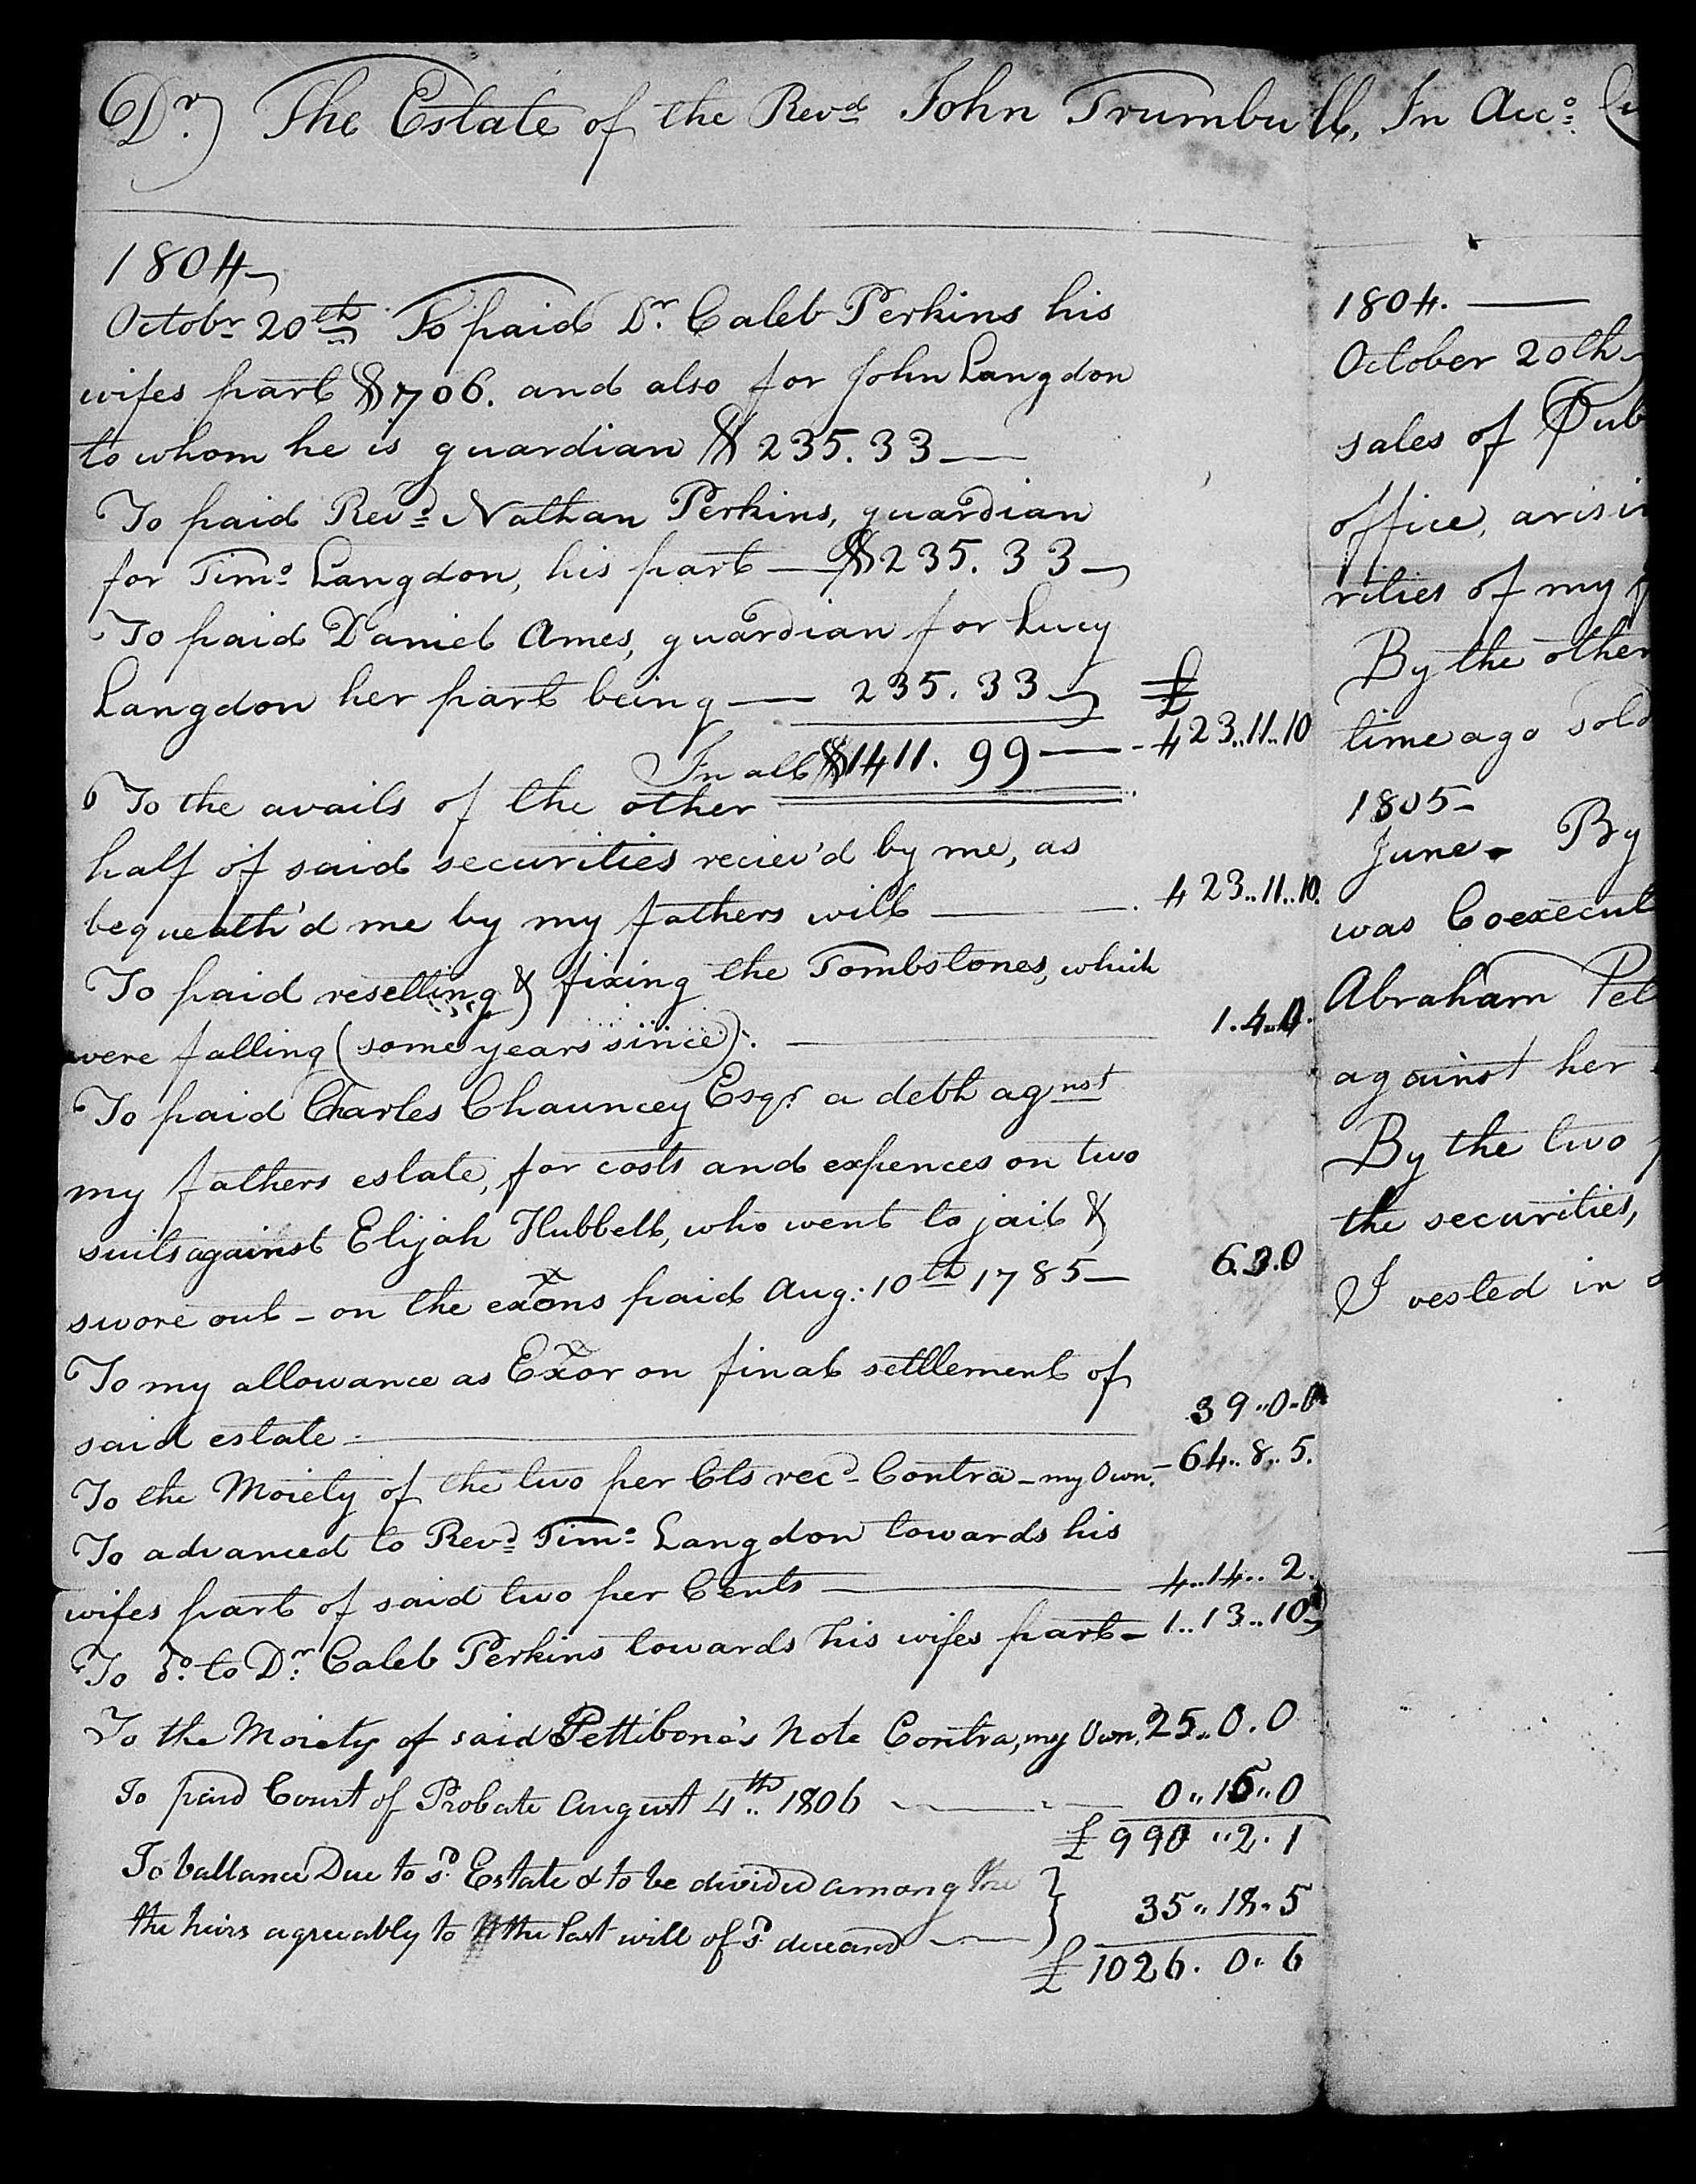 Dr. The Estate of the Revd. John Trumbull, In Acco.
1804
Octobr 20th To paid Dr. Caleb Perkins his
wifes part $706. and also for John Langdon
to whom he is guardian $235.33
To paid Revd. Nathan Perkins, guardian
for Timo. Langdon, his part $235.33
To paid Daniel Ames, guardian for Lucy
Langdon her part being 235.33 £
In all $1411.99 423..11..10
To the avails of the other
half of said securities reciev'd by me, as
bequeath'd me by my fathers will 423..11..10.
To paid resetting & fixing the Tombstones, which
were falling (some years since). 1.4..0.
To paid Charles Chauncey Esqr. a debt agnst
my fathers estate, for costs and expences on two
suits against Elijah Hubbell, who went to jail &
swore out - on the exons paid Aug: 10th 1785 6.3.0
To my allowance as Exor on final settlement of
said estate 39..0..0
To the Moiety of the two per Cts recd. Contra - my Own. 64..8..5.
To advanced to Revd. Timo. Langdon towards his
wifes part of said two per Cents 4..14..2.
To do. to Dr. Caleb Perkins towards his wifes part 1..13..10
To the Moiety of said Pettibone's Note Contra, my Own, 25..0.0
To paid Court of Probate August 4th.. 1806 0..15..0
£990..2.1
To ballance Due to sd. Estate & to be divided among the
the heirs agreeably to the last will of sd. deceasd } 35..18.5
£1026.0.6
1804.
October 20th
sales of Pub
office, arisin
rities of my
By the other
time ago sold
1805-
June - By
was Coexecut
Abraham Pet
against her
By the two
the securities,
I vested in